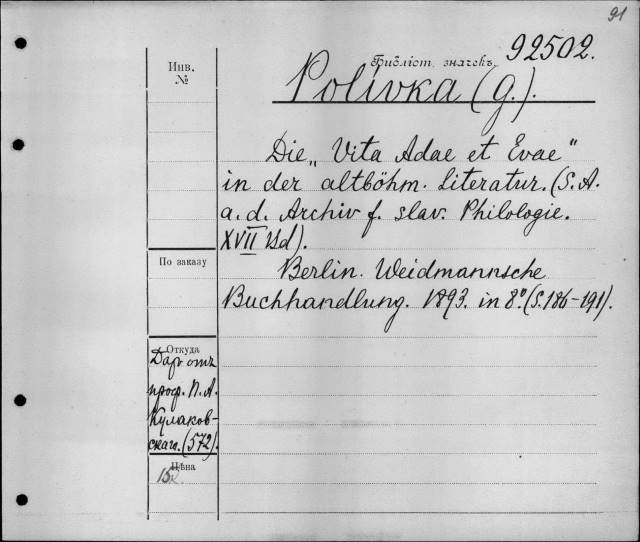 91
Инв.
№
Библіот. значекъ
92502.
Polívka (G.).
Die „Vita Adae et Evae"
in der altböhm. Literatur. (S. A.
a. d. Archiv f. slav. Philologie.
XVII Bd).
По заказу
Berlin. Weidmannsche
Buchhandlung. 1893. in 8º. (S. 186-191).
Откуда
Даръ отъ
проф. П. А.
Кулаков-
скаго. (572).
Цѣна